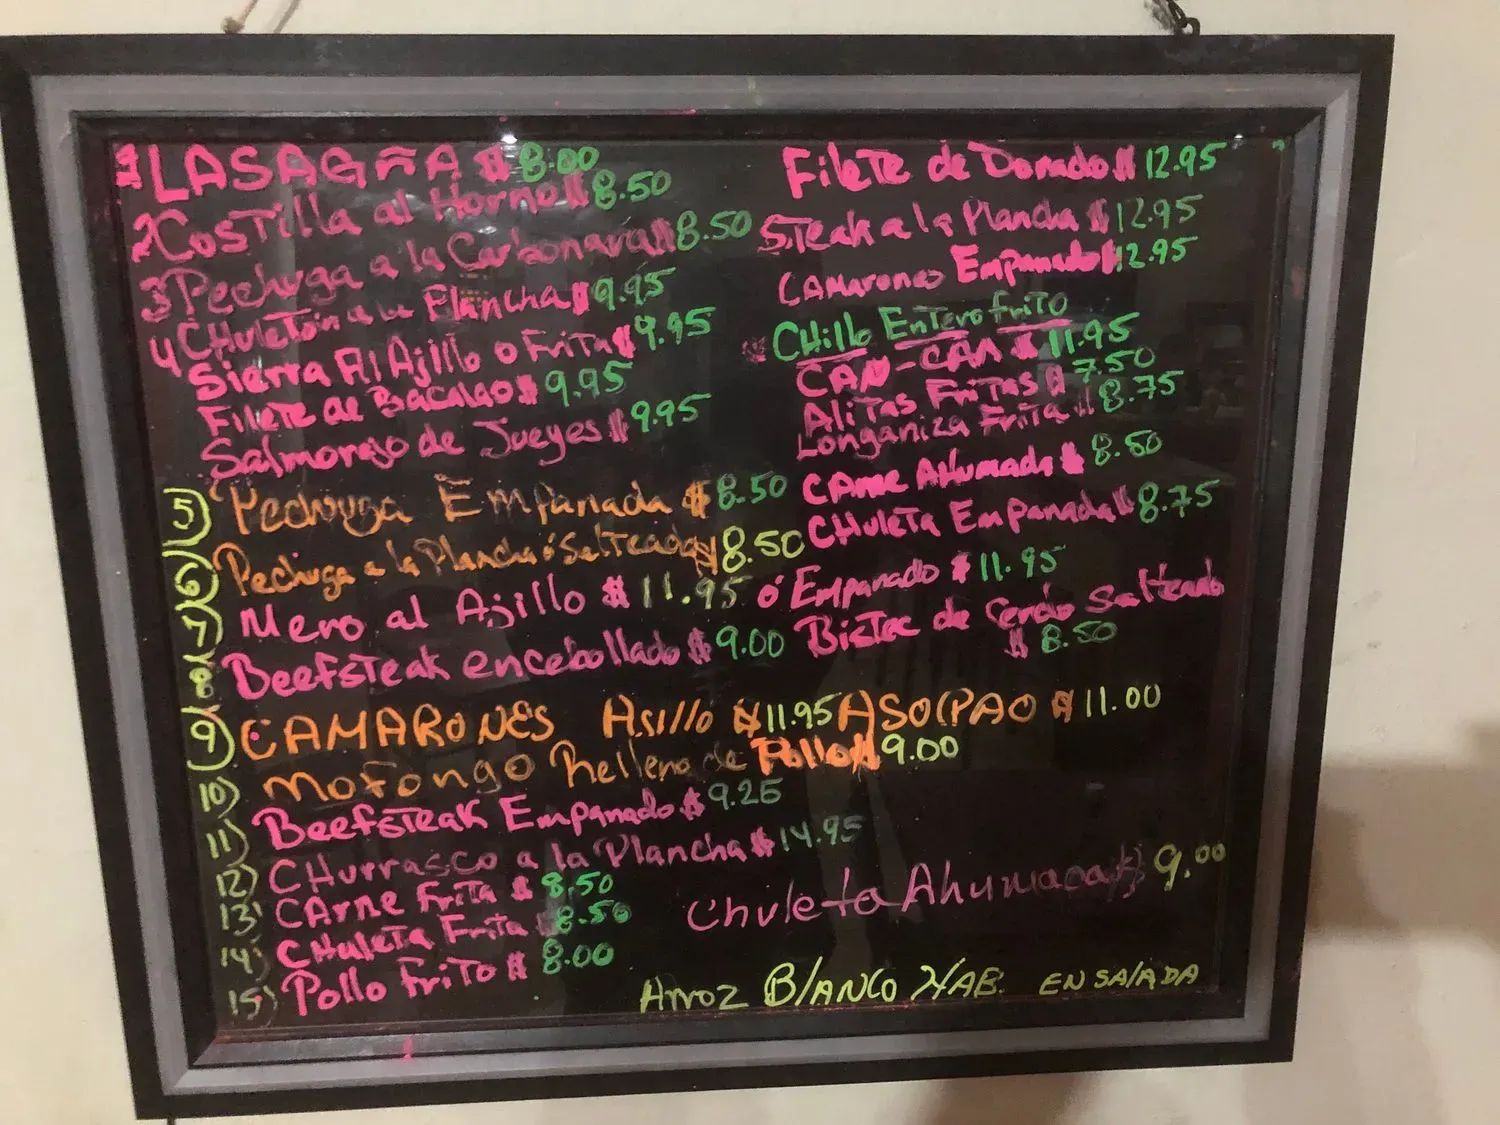 1 LASAGÑA $ 8.00
2 Costilla al Horno $ 8.50
3 Pechuga a la Carbonara $ 8.50
4 Chuletón a la Plancha $ 9.95
Sierra Al Ajillo o Frita $ 9.95
Filete de Bacalao $ 9.95
Salmorejo de Jueyes $ 9.95
5) Pechuga Empanada $ 8.50
6) Pechuga a la Plancha ó Salteada $ 8.50
7) Mero al Ajillo $ 11.95 ó Empanado $ 11.95
8 Beefsteak encebollado $ 9.00
9) CAMARONES AsIllo $ 11.95 ASOPAO $ 11.00
10) Mofongo Relleno de Pollo $ 9.00
11) Beefsteak Empanado $ 9.25
12) CHurrasco a la Plancha $ 14.95
13) CArne Frita $ 8.50
14) CHuleta Frita $ 8.50
15) Pollo Frito $ 8.00
Filete de Dorado $ 12.95
Steak a la Plancha $ 12.95
CAMarones Empanado $ 12.95
CHillo Entero frito
CAN-CAN $ 11.95
Alitas Fritas $ 7.50
Longaniza Frita $ 8.75
CArne AHumada $ 8.50
CHuleta Empanada $ 8.75
Bistec de Cerdo Salteado
$ 8.50
Chuleta Ahumada $ 9.00
Arroz BlANCO HAB. ENSAlADA